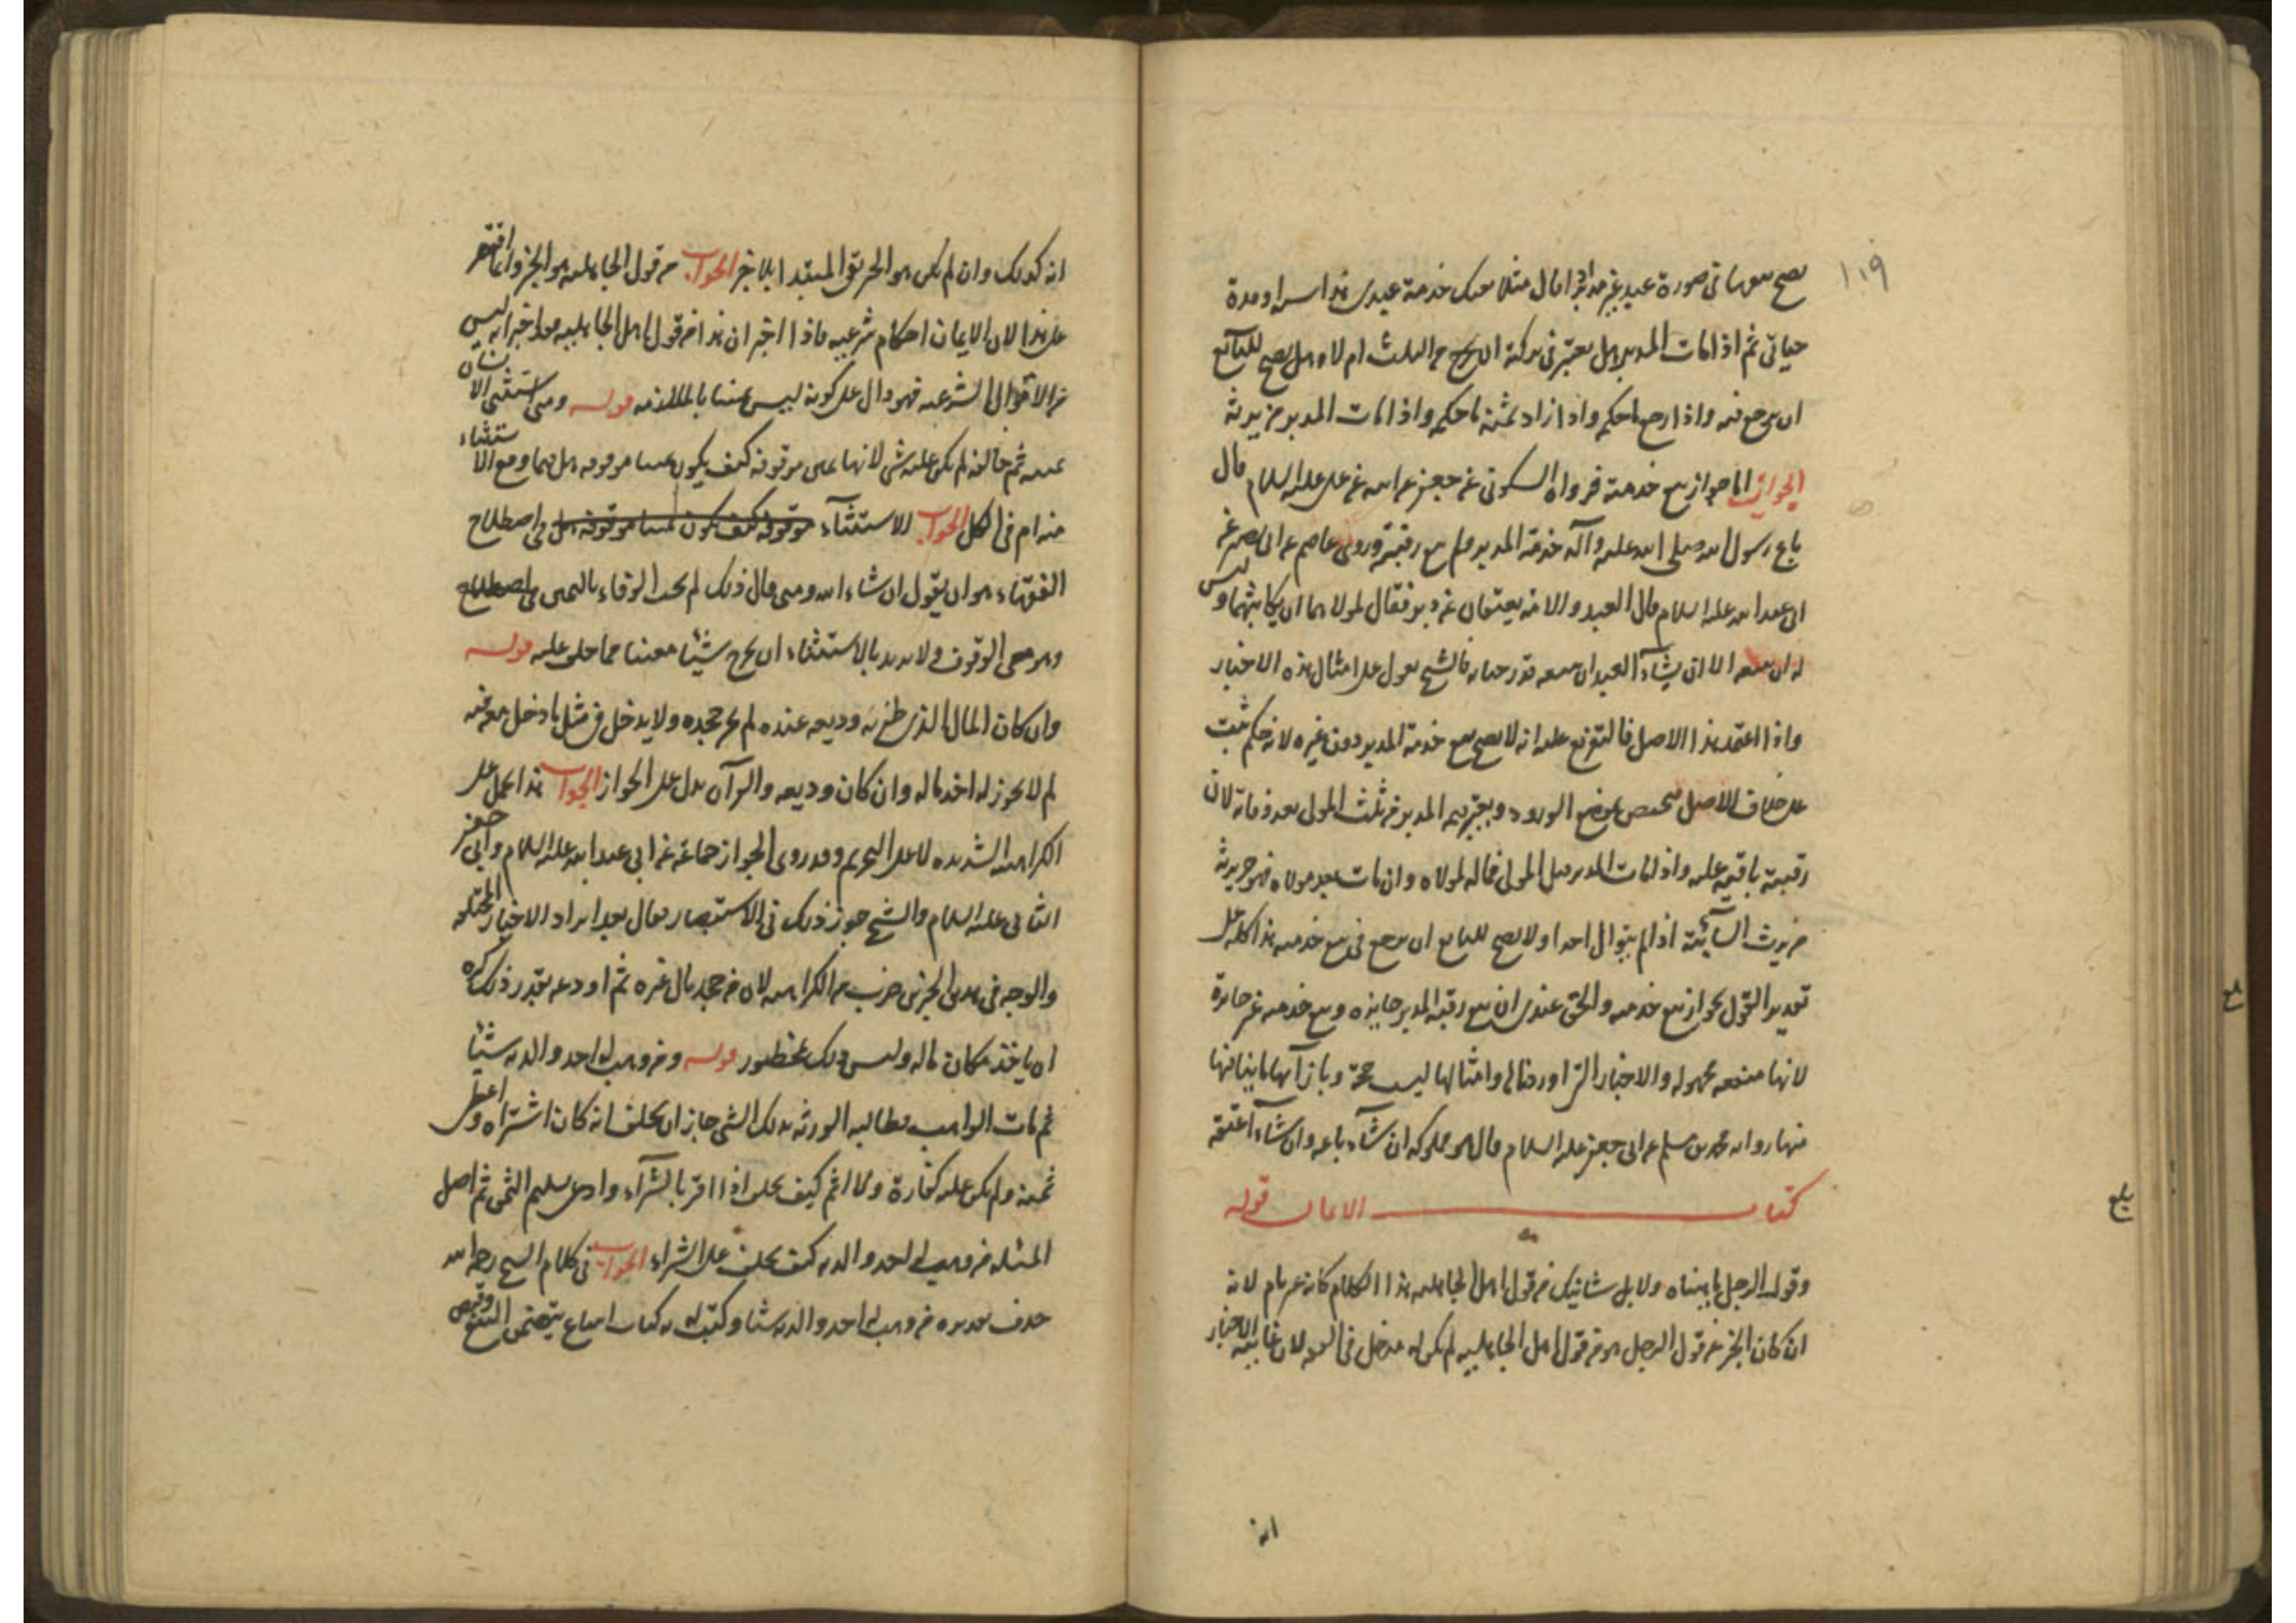 ١١٩
يصح بيعها في صورة عبد غير مدبر اذا قال مثلا بعتك خدمة عبدي هذا سنة او مدة
حياتي ثم اذا مات المدبر هل يعتبر في تركته ان يخرج من الثلث ام لا وهل يصح للبائع
ان يرجع فيه واذا رجع ما حكمه واذا زاد ثمنه ما حكمه واذا مات المدبر من يرثه
الجواب اما جواز بيع خدمته فرواه السكوني عن جعفر عن ابيه عن علي عليه السلام قال
باع رسول الله صلى الله عليه وآله خدمة المدبر ولم يبع رقبته وروى عاصم عن ابي بصير عن
ابي عبد الله عليه السلام قال العبد والامة يعتقان عن دبر فقال لمولاهما ان يكاتبهما وليس
له ان يبيعه الا ان يشاء العبد ان يبيعه قدر حياته فالشيخ يعول على امثال هذه الاخبار
واذا اعتمد هذا الاصل فالتفريع عليه انه لا يصح بيع خدمة المدبر دون غيره لانه حكم ثبت
على خلاف الاصل فيختص بموضع الورود ويعتبر قيمة المدبر من ثلث المولى بعد وفاته لان
رقبته باقية عليه واذا مات المدبر قبل المولى فماله لمولاه وان مات بعد مولاه فهو حر يرثه
من يرث السائبة اذا لم يتوال احدا ولا يصح للبايع ان يرجع في بيع خدمته هذا كله على
تقدير القول بجواز بيع خدمته والحق عندي ان بيع رقبة المدبر جايزة وبيع خدمته غير جايزة
لانها منفعة مجهولة والاخبار التي اوردناها وامثالها ليست حجة وبازائها ما ينافيها
منها رواية محمد بن مسلم عن ابي جعفر عليه السلام قال هو مملوكه ان شاء باعه وان شاء اعتقه
كتاب الايمان قوله
وقول الرجل يا هناه ولا بل شانيك من قول اهل الجاهلية هذا الكلام كانه غير تام لانه
ان كان الخبر عن قول الرجل هو من قول اهل الجاهلية لم يكن له مدخل في الفقه لان غايته الاخبار
انه
انه كذلك وان لم يكن هو الخبر بقي المبتدا بلا خبر الجواب من قول الجاهلية هو الخبر وانما اقتصر
على هذا لان الايمان احكام شرعية فاذا اخبر ان هذا من قول اهل الجاهلية فقد اخبر انه ليس
من الاقوال الشرعية فهو دال على كونه ليس يمينا بالملازمة قوله ومتى استثنى الانسان
في يمينه ثم خالفه لم يكن عليه شئ لانها يمين موقوفة كيف يكون يمينا موقوفة هل فيما وقع الاستثناء
منه ام في الكل الجواب الاستثناء موقوفة كيف يكون يمينا موقوفة هل في اصطلاح
الفقهاء هو ان يقول ان شاء الله ومتى قال ذلك لم يجب الوفاء باليمين في اصطلاح
وهو معنى الوقوف ولا يريد بالاستثناء ان يخرج شيئا معينا مما حلف عليه قوله
وان كان المال الذي حلف به وديعة عنده لم يجز جحده ولا يدخل في مثل ما دخل معه فيه
لم لا يجوز له اخذ ماله وان كان وديعة والقرآن يدل على الجواز الجواب هذا يحمل على
الكراهية الشديدة لا على التحريم وقد روى الجواز جماعة عن ابي عبد الله عليه السلام وابي جعفر
الثاني عليه السلام والشيخ جوز ذلك في الاستبصار فقال بعد ايراد الاخبار المختلفة
والوجه في هذين الخبرين ضرب من الكراهية لان من جحد مال غيره ثم اودعه بقدر ذلك كره
ان ياخذ مكان ماله وليس ذلك بمحظور قوله ومن وهب له احد والديه شيئا
ثم مات الواهب فطالبه الورثة بذلك الشئ جاز ان يحلف انه كان اشتراه واعطى
ثمنه ولم يكن عليه كفارة ولا اثم كيف يحلف اذا اقر بالشراء وادعى تسليم الثمن ثم اصل
المسئلة من وهب له احد والديه كيف يحلف على الشراء الجواب في كلام الشيخ رحمه الله
حذف تقديره من وهب له احد والديه شيئا وكتب له به كتاب ابتياع يتضمن البيع وقبض